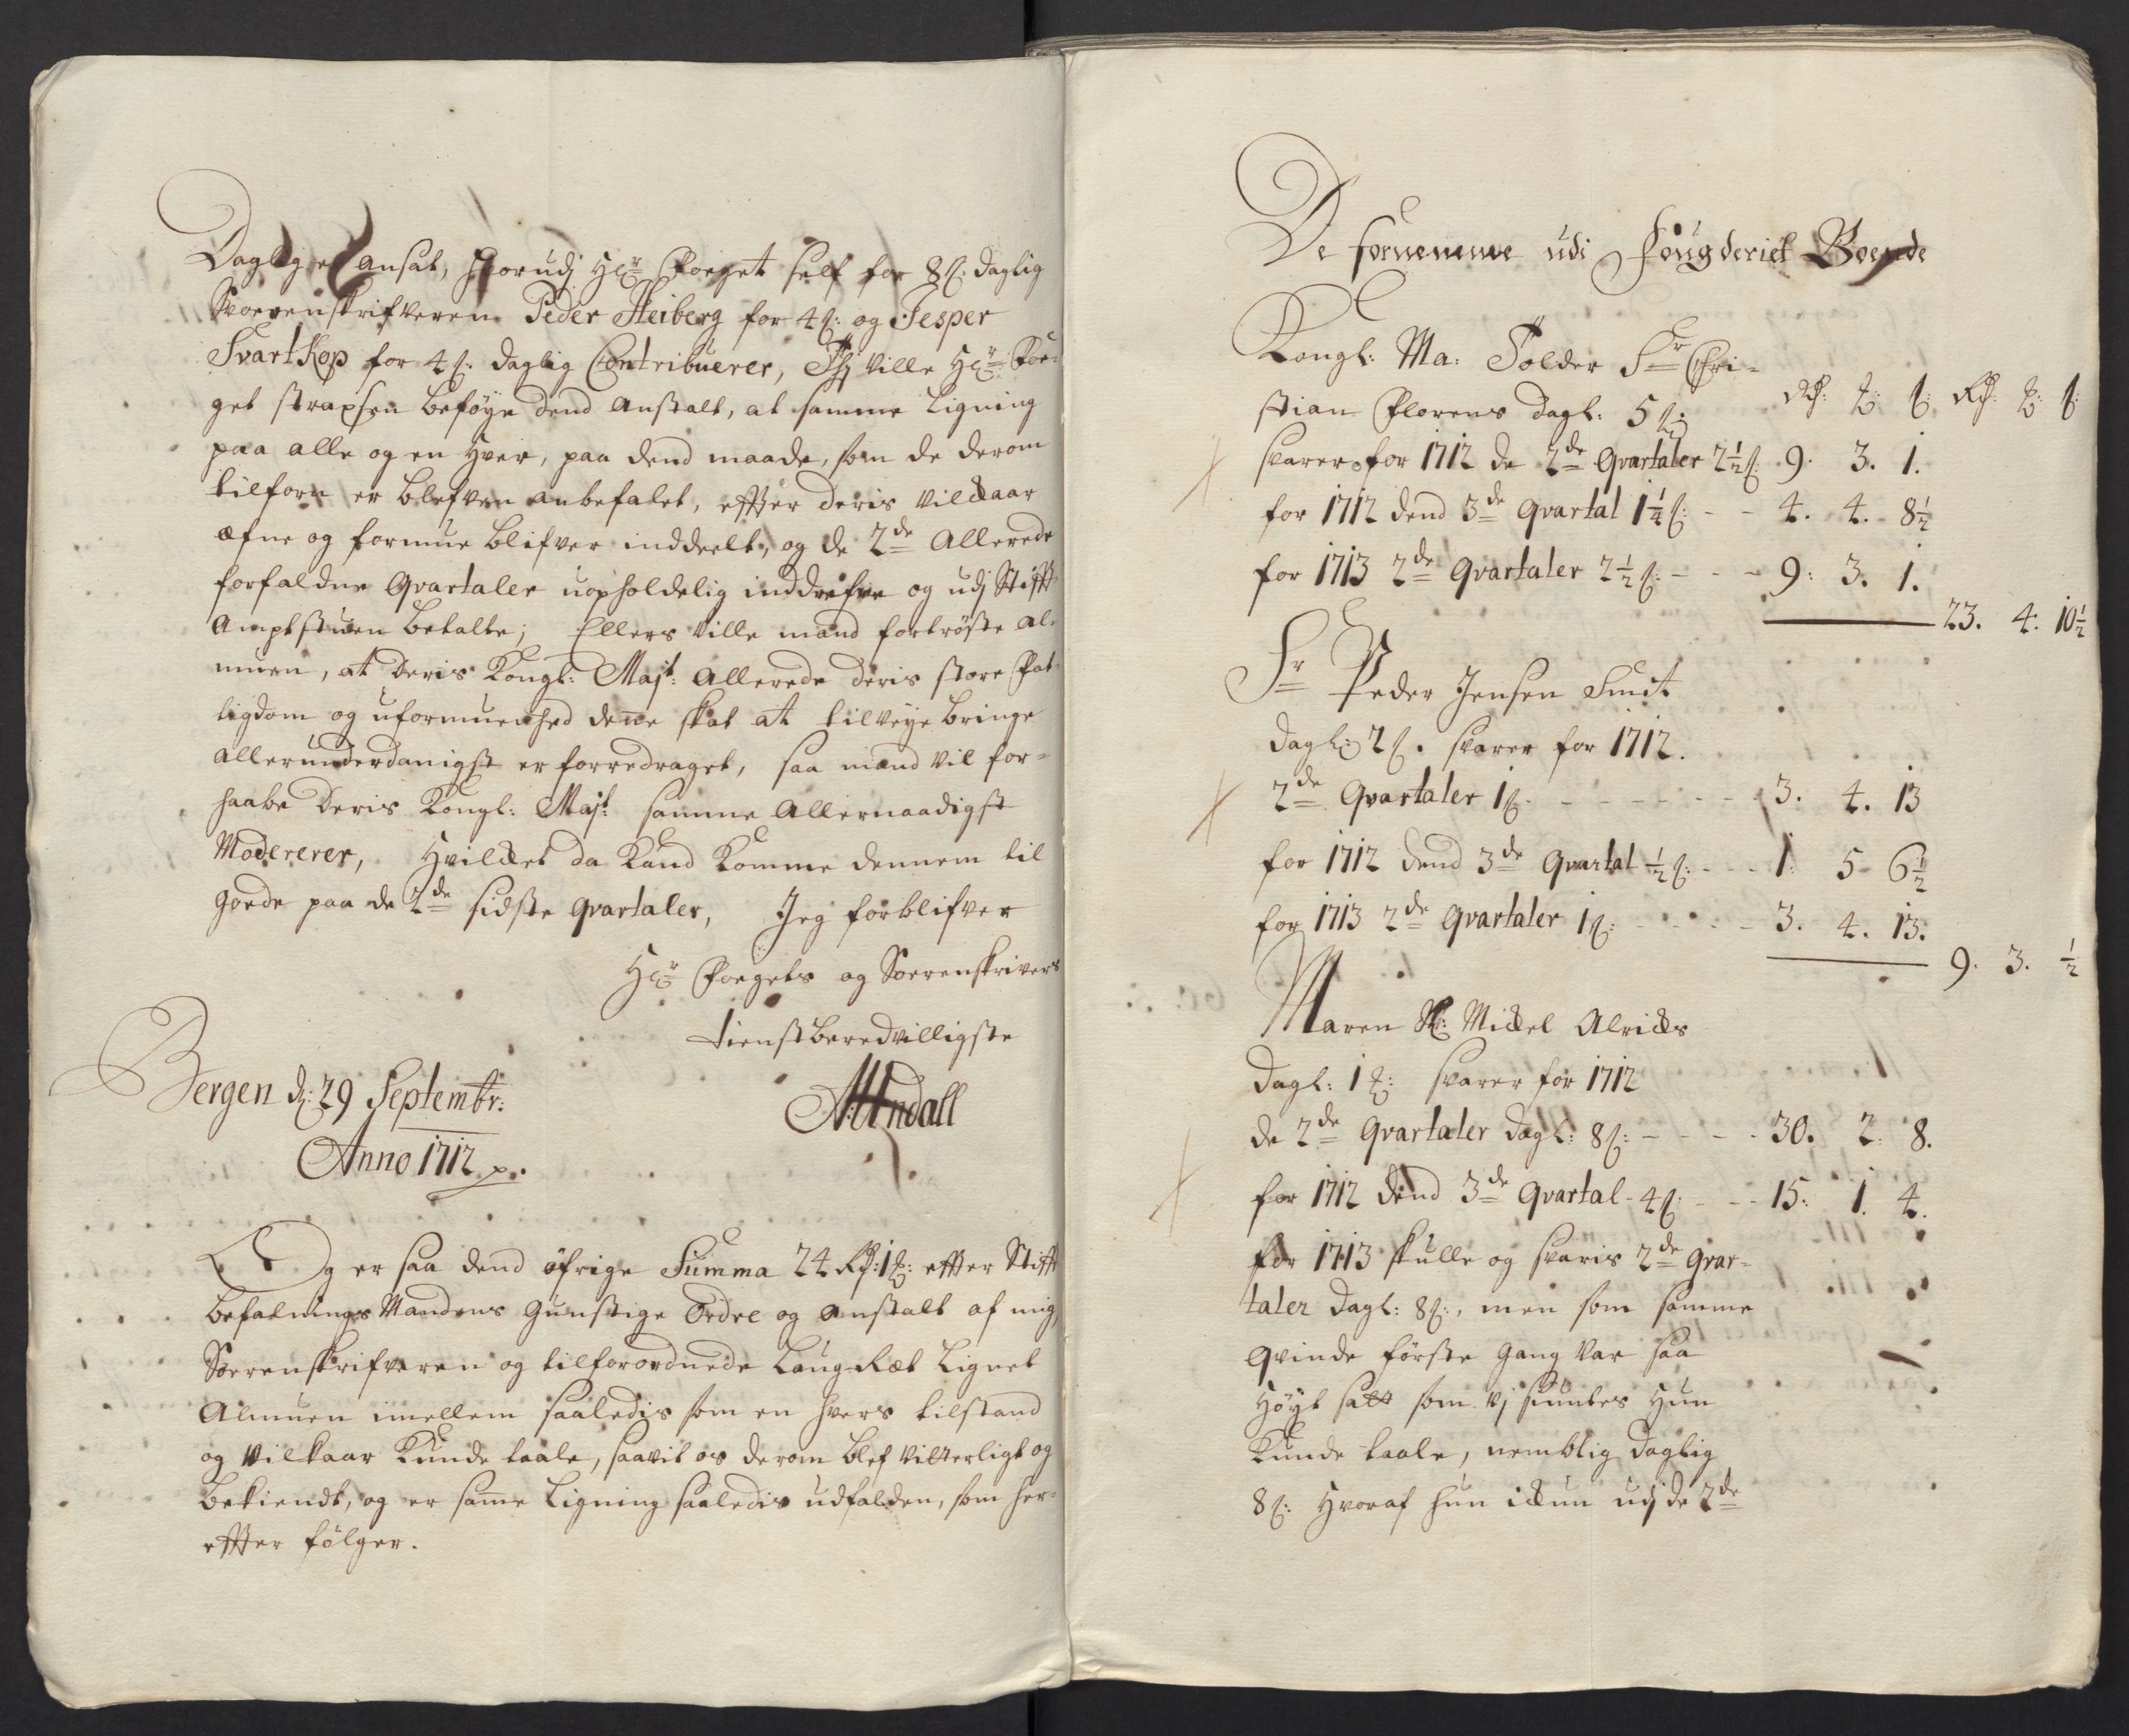 Daglig er ansat, hvorudj Hr Foeget self for 8 s: daglig
Soerenskrifveren Peder Heiberg for 4 s: og Jesper
SvartKop for 4 s: daglig Contribuerer, Thj Ville Hr Foe-
get strapsen beføye dend Anstalt, at samme Ligning
paa alle og en Hver, paa dend maade, som de derom
tilforn er blefven anbefalet, effter deris Vilckaar
æfne og formue blifver inddeelt, og de 2de Allerede
forfaldne Qvartaler uopholdelig inddrefve og udj Stifft
Amptstuen betalte; Ellers Ville mand fortrøste Al-
muen, at Deris Kongl: Majt: Allerede deris store Fat-
tigdom og uformuenhed denne skat at tilveye bringe
allerunderdanigst er forredraget, saa mand Vil for-
haabe Deris Kongl: Majt: samme Allernaadigst
Modererer, Hvilcket da Kand Komme dennem til
goede paa de 2de sidste qvartaler, Jeg forblifver
Hr Foegets og Soerenskrivers
tienstberedvilligste
Bergen d: 29 Septembr:
Anno 1712
Og er saa dend øfrige Summa 24 Rd: 1 : effter Stifft
befalnings Mandens Gunstige Ordre og anstalt af mig,
Sorenskrifveren og tilforordnede Laug-Ræt Lignet
Almuen imellem saaledis som en hvers tilstand
og Vilkaar Kunde taale, saavit os derom blef Vitterligt og
bekiendt, og er samme Ligning saaledis udfalden, som her-
effter følger.
De fornemme udi Fougderiet Boende
Kongl: Ma: Tolder Sr Chri-
stian Florens dagl: 5 s: Rd: : s: Rd: : s:
svarer for 1712 de 2de Qvartaler 2½ s: 9. 3. 1.
for 1712 dend 3de Qvartal 1¼ s: - - 4. 4. 8½
for 1713 2de Qvartaler 2½ s: - - - 9: 3. 1.
23. 4. 10½
Sr Peder Jensen Smit
dagl: 2 s. svarer for 1712.
2de Qvartaler 1 s. - - - - - - 3. 4. 13
for 1712 dend 3de Qvartal ½ s: - - - 1: 5 - 6½
for 1713 2de Qvartaler 1 s: - - - - - 3. 4. 13.
9. 3. ½
Maren Sl: Mickel Alricks
dagl: 1 : svarer for 1712
de 2de Qvartaler dagl: 8 s: - - - - 30. 2. 8.
for 1712 dend 3de Qvartal - 4 s: - - - 15. 1. 4.
for 1713 skulle og svaris 2de Qvar-
taler dagl: 8 s:, men som samme
Qvinde første gang Var saa
Høyt satt som Vj siuntes Hun
Kunde taale, nemblig daglig
8 s: Hvoraf hun ickun udj de 2de